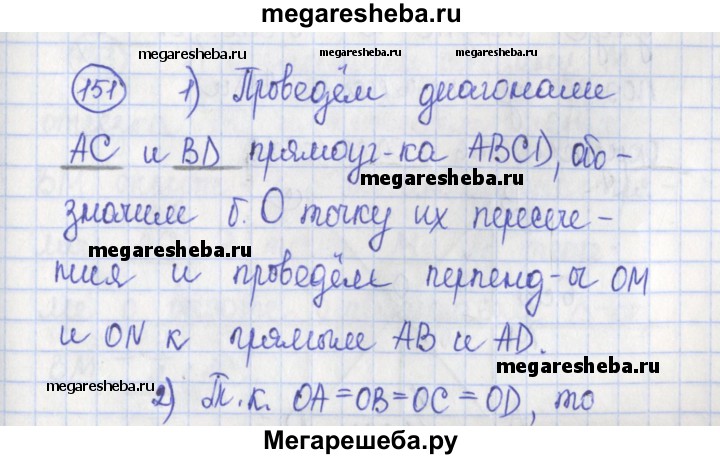 megaresheba.ru
megaresheba.ru megaresheba.ru megaresheba.ru
151 1) Проведём диагонали
AC и BD прямоуг-ка ABCD, обо-
megaresheba.ru
значим б. O точку их пересече-
megaresheba.ru
ния и проведём перпенд-ы OM
и ON к прямым AB и AD.
megaresheba.ru
megaresheba.ru
2) Т.к. OA=OB=OC=OD, то
Мегарешеба.ру